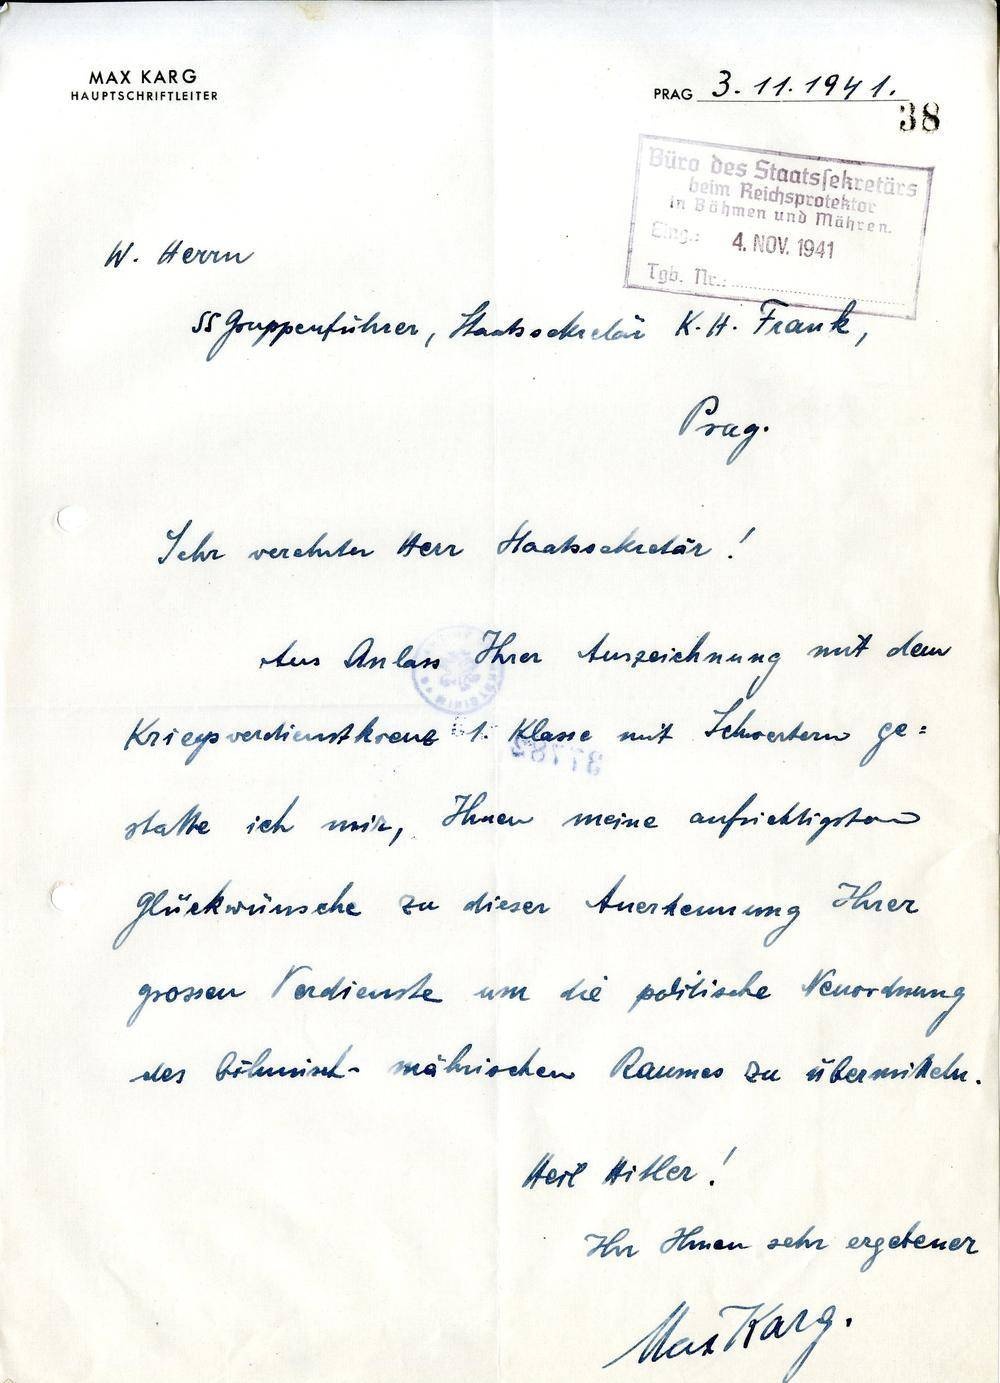 MAX KARG
HAUPTSCHRIFTLEITER
PRAG 3.11.1941.
38
Büro des Staatssekretärs
beim Reichsprotektor
in Böhmen und Mähren.
Eing.: 4. NOV. 1941
Tgb. Nr.:
W. Herrn
SS Gruppenführer, Staatssekretär K. H. Frank,
Prag.
Sehr verehrter Herr Staatssekretär!
Aus Anlass Ihrer Auszeichnung mit dem
Kriegsverdienstkreuz 1. Klasse mit Schwertern ge=
statte ich mir, Ihnen meine aufrichtigsten
Glückwünsche zu dieser Anerkennung Ihrer
grossen Verdienste um die politische Neuordnung
des böhmisch-mährischen Raumes zu übermitteln.
Heil Hitler!
Ihr Ihnen sehr ergebener
Max Karg.